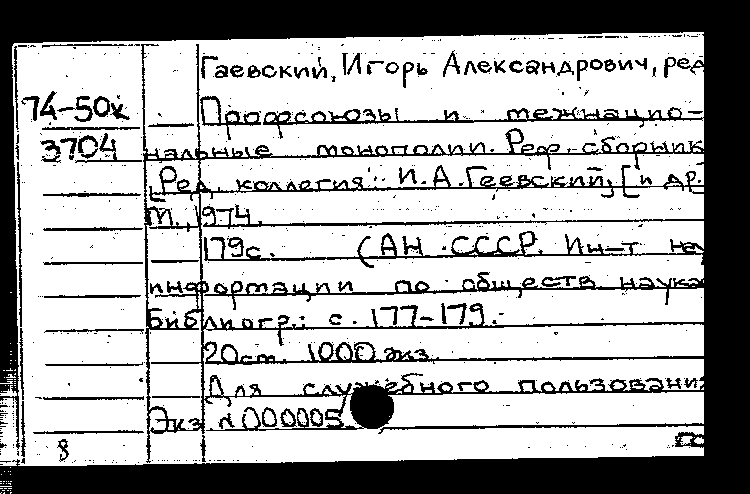 Гаевский, Игорь Александрович, ред
74-50к
Профсоюзы и межнацио-
3704
нальные монополии. Реф. сборник
[Ред. коллегия: И.А.Гаевский, [и др.
М., 1974.
179с. (АН СССР. Ин-т нау
информации по обществ наука
Библиогр.: с. 177-179.
20см. 1000 экз.
Для служебного пользовани
Экз. N 000005
8